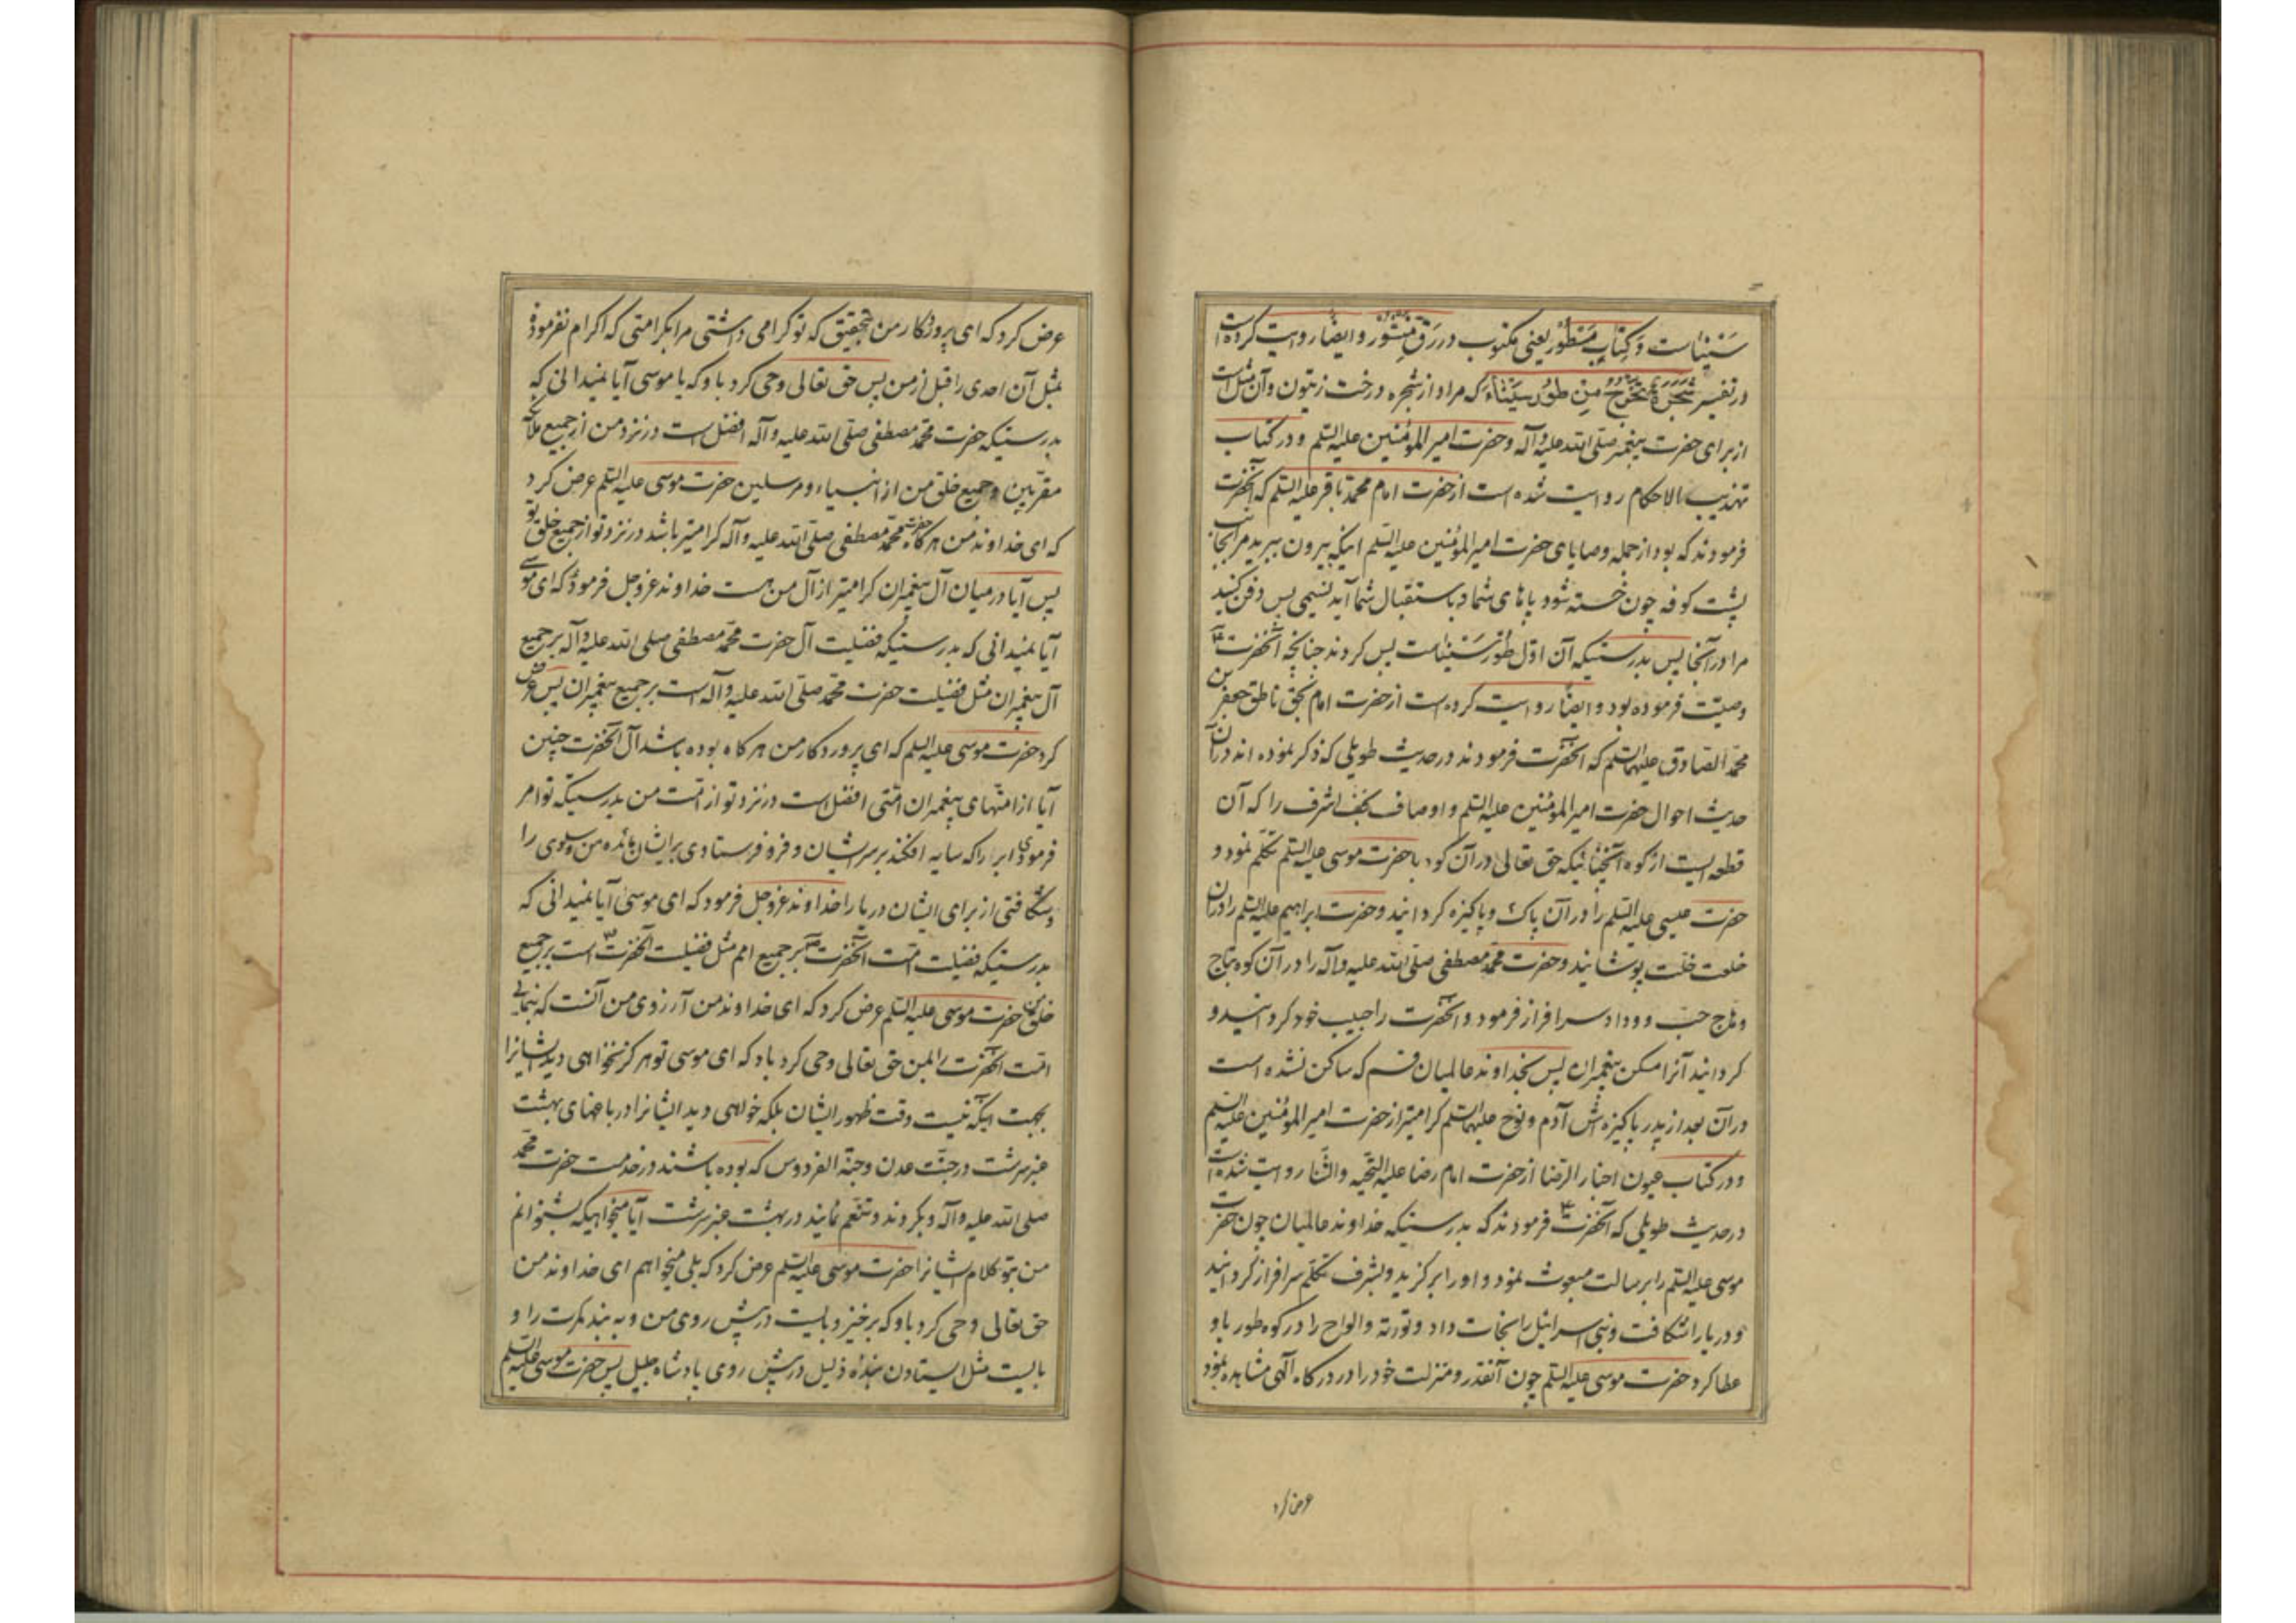 سَنِیناست وَ کِتابٍ مَسْطُورٍ یعنی مکتوب در رَقٍّ مَنْشُورٍ و ایضاً روایت کرده است
در تفسیر شَجَرَةً تَخْرُجُ مِنْ طُورِ سَیْنٰاءَ که مراد از شجره درخت زیتون و آن مثل است
از برای حضرت پیغمبر صلی الله علیه و آله و حضرت امیر المؤمنین علیه السلم و در کتاب
تهذیب الاحکام روایت شده است از حضرت امام محمد باقر علیه السلم که آنحضرت
فرمودند که بود از جمله وصایای حضرت امیر المؤمنین علیه السلم اینکه بیرون ببرید مرا بجانب
پشت کوفه چون خسته شود پاهای شما و باستقبال شما آید نسیمی پس دفن کنید
مرا در آنجا پس بدرستیکه آن اوّل طور سَیْناست پس کردند چنانچه آنحضرت
وصیّت فرموده بود و ایضاً روایت کرده است از حضرت امام بحق ناطق جعفر بن
محمّد الصّادق علیهما السلم که آنحضرت فرمودند در حدیث طویلی که ذکر نموده اند در آن
حدیث احوال حضرت امیر المؤمنین علیه السلم و اوصاف نجف اشرف را که آن
قطعه ایست از کوه آنچنانیکه حق تعالی در آن کوه با حضرت موسی علیه السلم تکلّم نمود و
حضرت عیسی علیه السلم را در آن پاک و پاکیزه کردانید و حضرت ابراهیم علیه السلم را در آن
خلعت خلّت پوشانید و حضرت محمّد مصطفی صلی الله علیه و آله را در آن کوه بتاج
و هاج حبّ و وداد سرافراز فرمود و آنحضرت را حبیب خود کردانید و
کردانید آنرا مسکن پیغمبران پس بخداوند عالمیان قسم که ساکن نشده است
در آن بعد از پدر پاکیزه اش آدم و نوح علیهما السلم کرامیتر از حضرت امیر المؤمنین علیه السلم
و در کتاب عیون اخبار الرّضا از حضرت امام رضا علیه التّحیه و الثّنا روایت شده است
در حدیث طویلی که آنحضرت فرمودند که بدرستیکه خداوند عالمیان چون حضرت
موسی علیه السلم را برسالت مبعوث نمود و او را برکزید و بشرف تکلّم سرافراز کردانید
و دریا را شکافت و بنی اسرائیل را نجات داد و توریة و الواح را در کوه طور باو
عطا کرد حضرت موسی علیه السلم چون آنقدر و منزلت خود را در درکاه الهی مشاهده نمود
عرض کرد
عرض کرد که ای پروردکار من بتحقیق که تو کرامی داشتی مرا بکرامتی که اکرام نفرمودۀ
بمثل آن احدی را قبل از من پس حق تعالی وحی کرد باو که یا موسی آیا نمیدانی که
بدرستیکه حضرت محمّد مصطفی صلّی الله علیه و آله افضل است در نزد من از جمیع ملائکه
مقربین و جمیع خلق من از انبیاء و مرسلین حضرت موسی علیه السلم عرض کرد
که ای خداوند من هرکاه حضرت محمّد مصطفی صلی الله علیه و آله کرامیتر باشد در نزد تو از جمیع خلق تو
پس آیا در میان آل پیغمبران کرامیتر از آل من هست خداوند عزوجل فرمود که ای موسی
آیا نمیدانی که بدرستیکه فضیلت آل حضرت محمّد مصطفی صلی الله علیه و آله بر جمیع
آل پیغمبران مثل فضیلت حضرت محمّد صلّی الله علیه و آله است بر جمیع پیغمبران پس عرض
کرد حضرت موسی علیه السلم که ای پروردکار من هرکاه بوده باشد آل آنحضرت چنین
آیا از امتهای پیغمبران امتی افضل است در نزد تو از امت من بدرستیکه تو امر
فرمودی ابر را که سایه افکند بر سر ایشان و فرو فرستادی بر ایشان مائده من و سلوی را
و شکافتی از برای ایشان دریا را خداوند عزوجل فرمود که ای موسی آیا نمیدانی که
بدرستیکه فضیلت امت آنحضرت بر جمیع امم مثل فضیلت آنحضرت است بر جمیع
خلق من حضرت موسی علیه السلم عرض کرد که ای خداوند من آرزوی من آنست که بنمائی
امّت آنحضرت را بمن حق تعالی وحی کرد باو که ای موسی تو هرکز نخواهی دید ایشانرا
بجهت اینکه نیست وقت ظهور ایشان بلکه خواهی دید ایشانرا در باغهای بهشت
عنبر سرشت در جنّت عدن و جنّة الفردوس که بوده باشند در خدمت حضرت محمّد
صلی الله علیه و آله و بکروند و متنعّم نمایند در بهشت عنبر سرشت آیا میخواهیکه بشنوانم
من بتو کلام ایشانرا حضرت موسی علیه السلم عرض کرد که بلی میخواهم ای خداوند من
حق تعالی وحی کرد باو که برخیز و بایست در پیش روی من و به بند کمرت را و
بایست مثل ایستادن بندۀ ذلیل در پیش روی پادشاه جلیل پس حضرت موسی علیه السلم